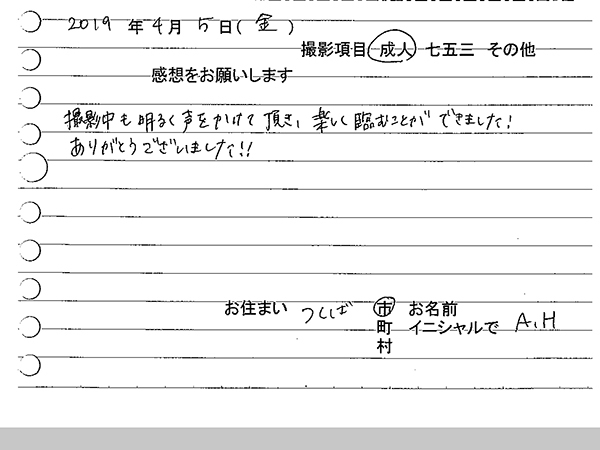 2019年4月5日(金)
撮影項目 成人 七五三 その他
感想をお願いします
撮影中も明るく声をかけて頂き、楽しく臨むことができました!
ありがとうございました!!
お住まい つくば 市 お名前
町 イニシャルで A.H
村